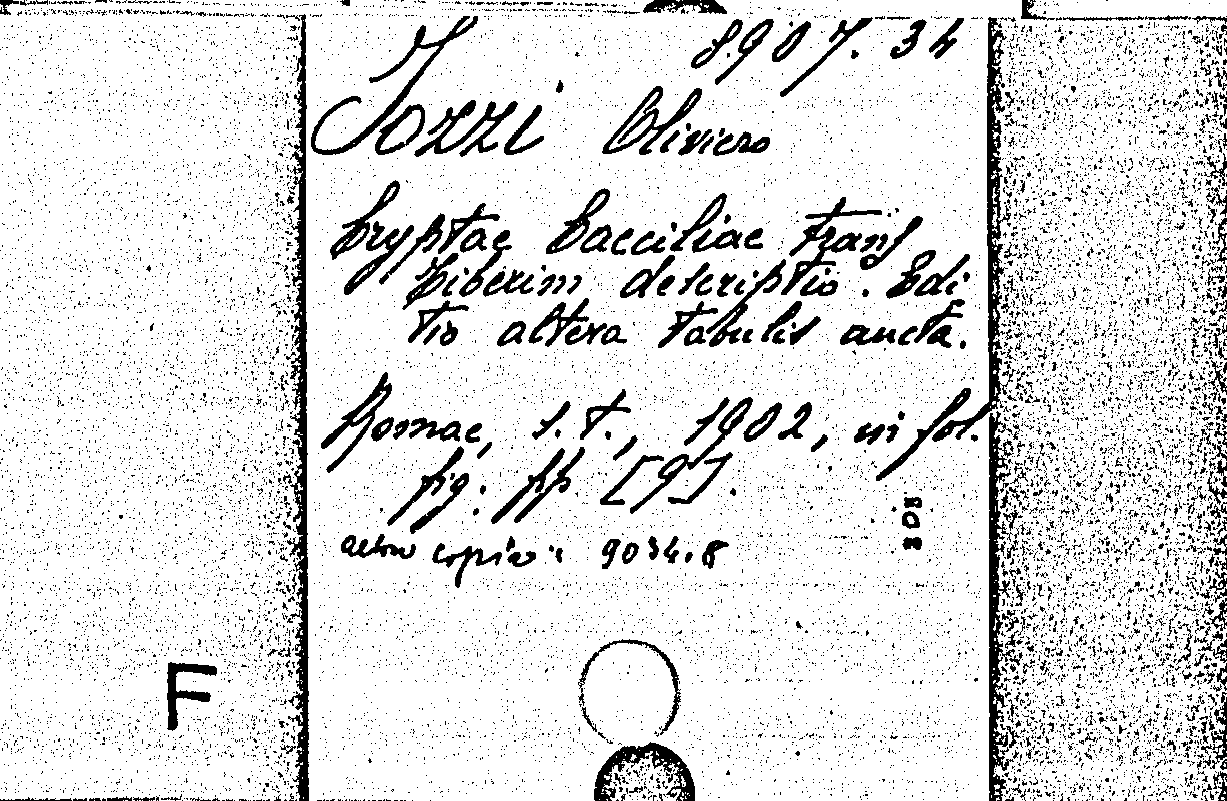 8.907.34
Jozzi Oliviero
Cryptae Caeciliae trans
Tiberim descriptio. Edi
tio altera tabulis aucta.
Romae, s.t., 1902, in fol.
fig. pp. [9].
altra copia: 9034.8
308
F